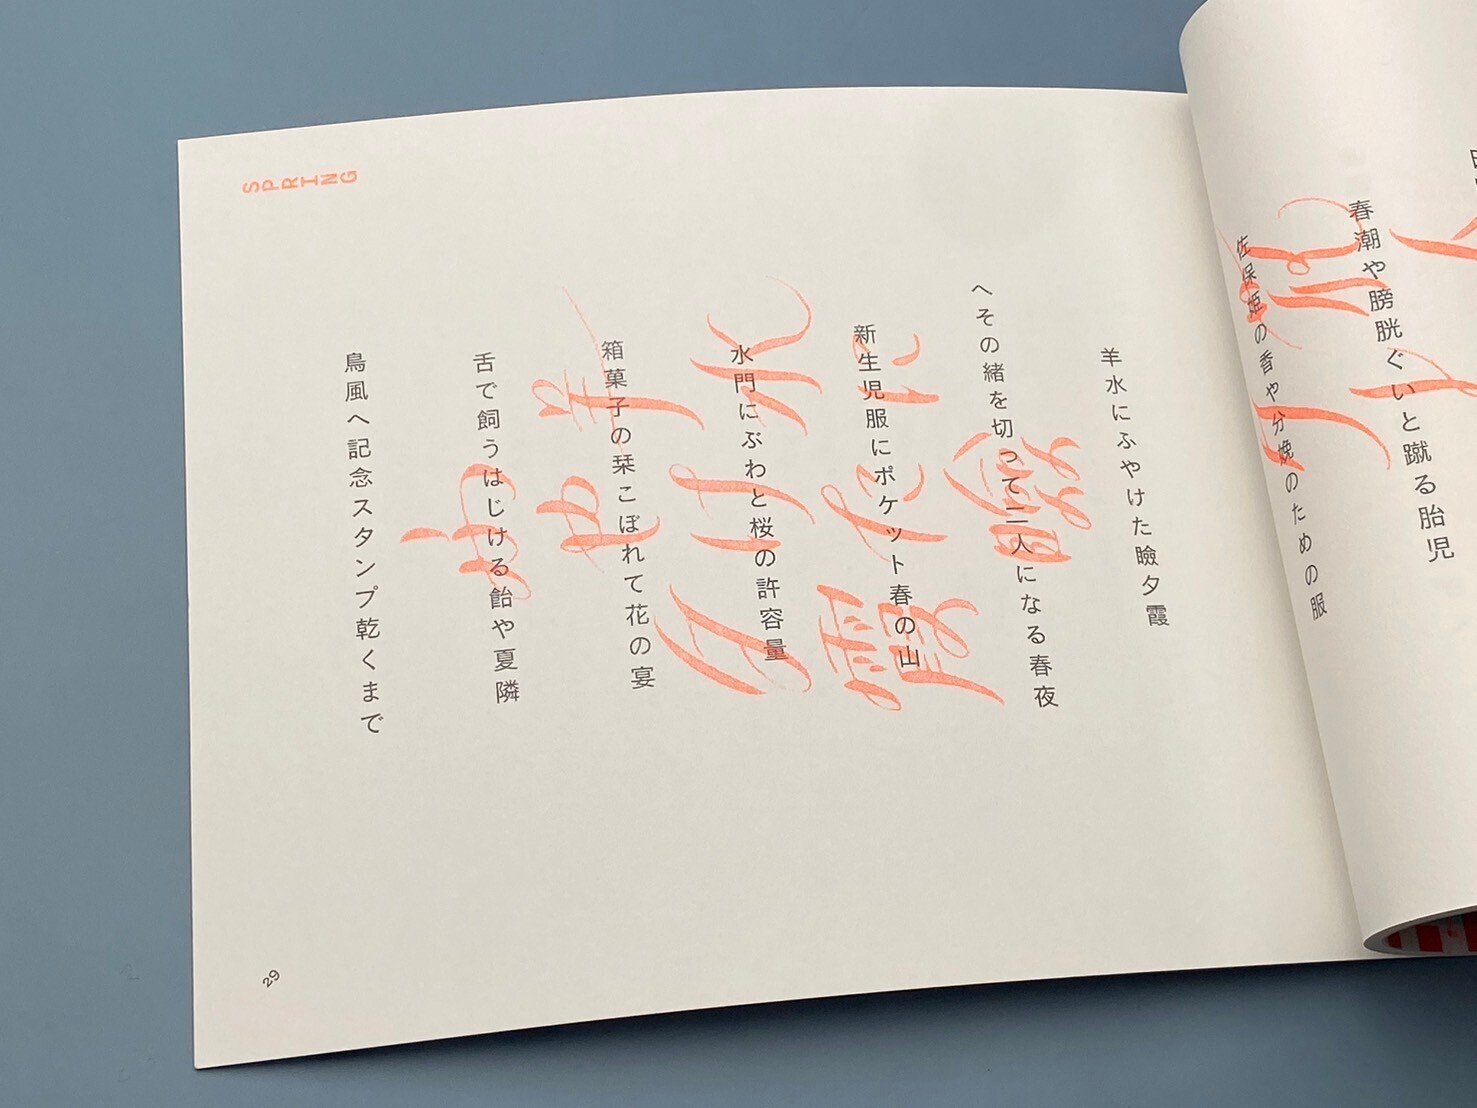 春潮や膀胱ぐいと蹴る胎児
佐保姫の香や分娩のための服
SPRING
羊水にふやけた瞼夕霞
へその緒を切って二人になる春夜
新生児服にポケット春の山
水門にぶわと桜の許容量
箱菓子の栞こぼれて花の宴
舌で飼うはじける飴や夏隣
鳥風へ記念スタンプ乾くまで
羊水に
ふやけた瞼
夕霞
29